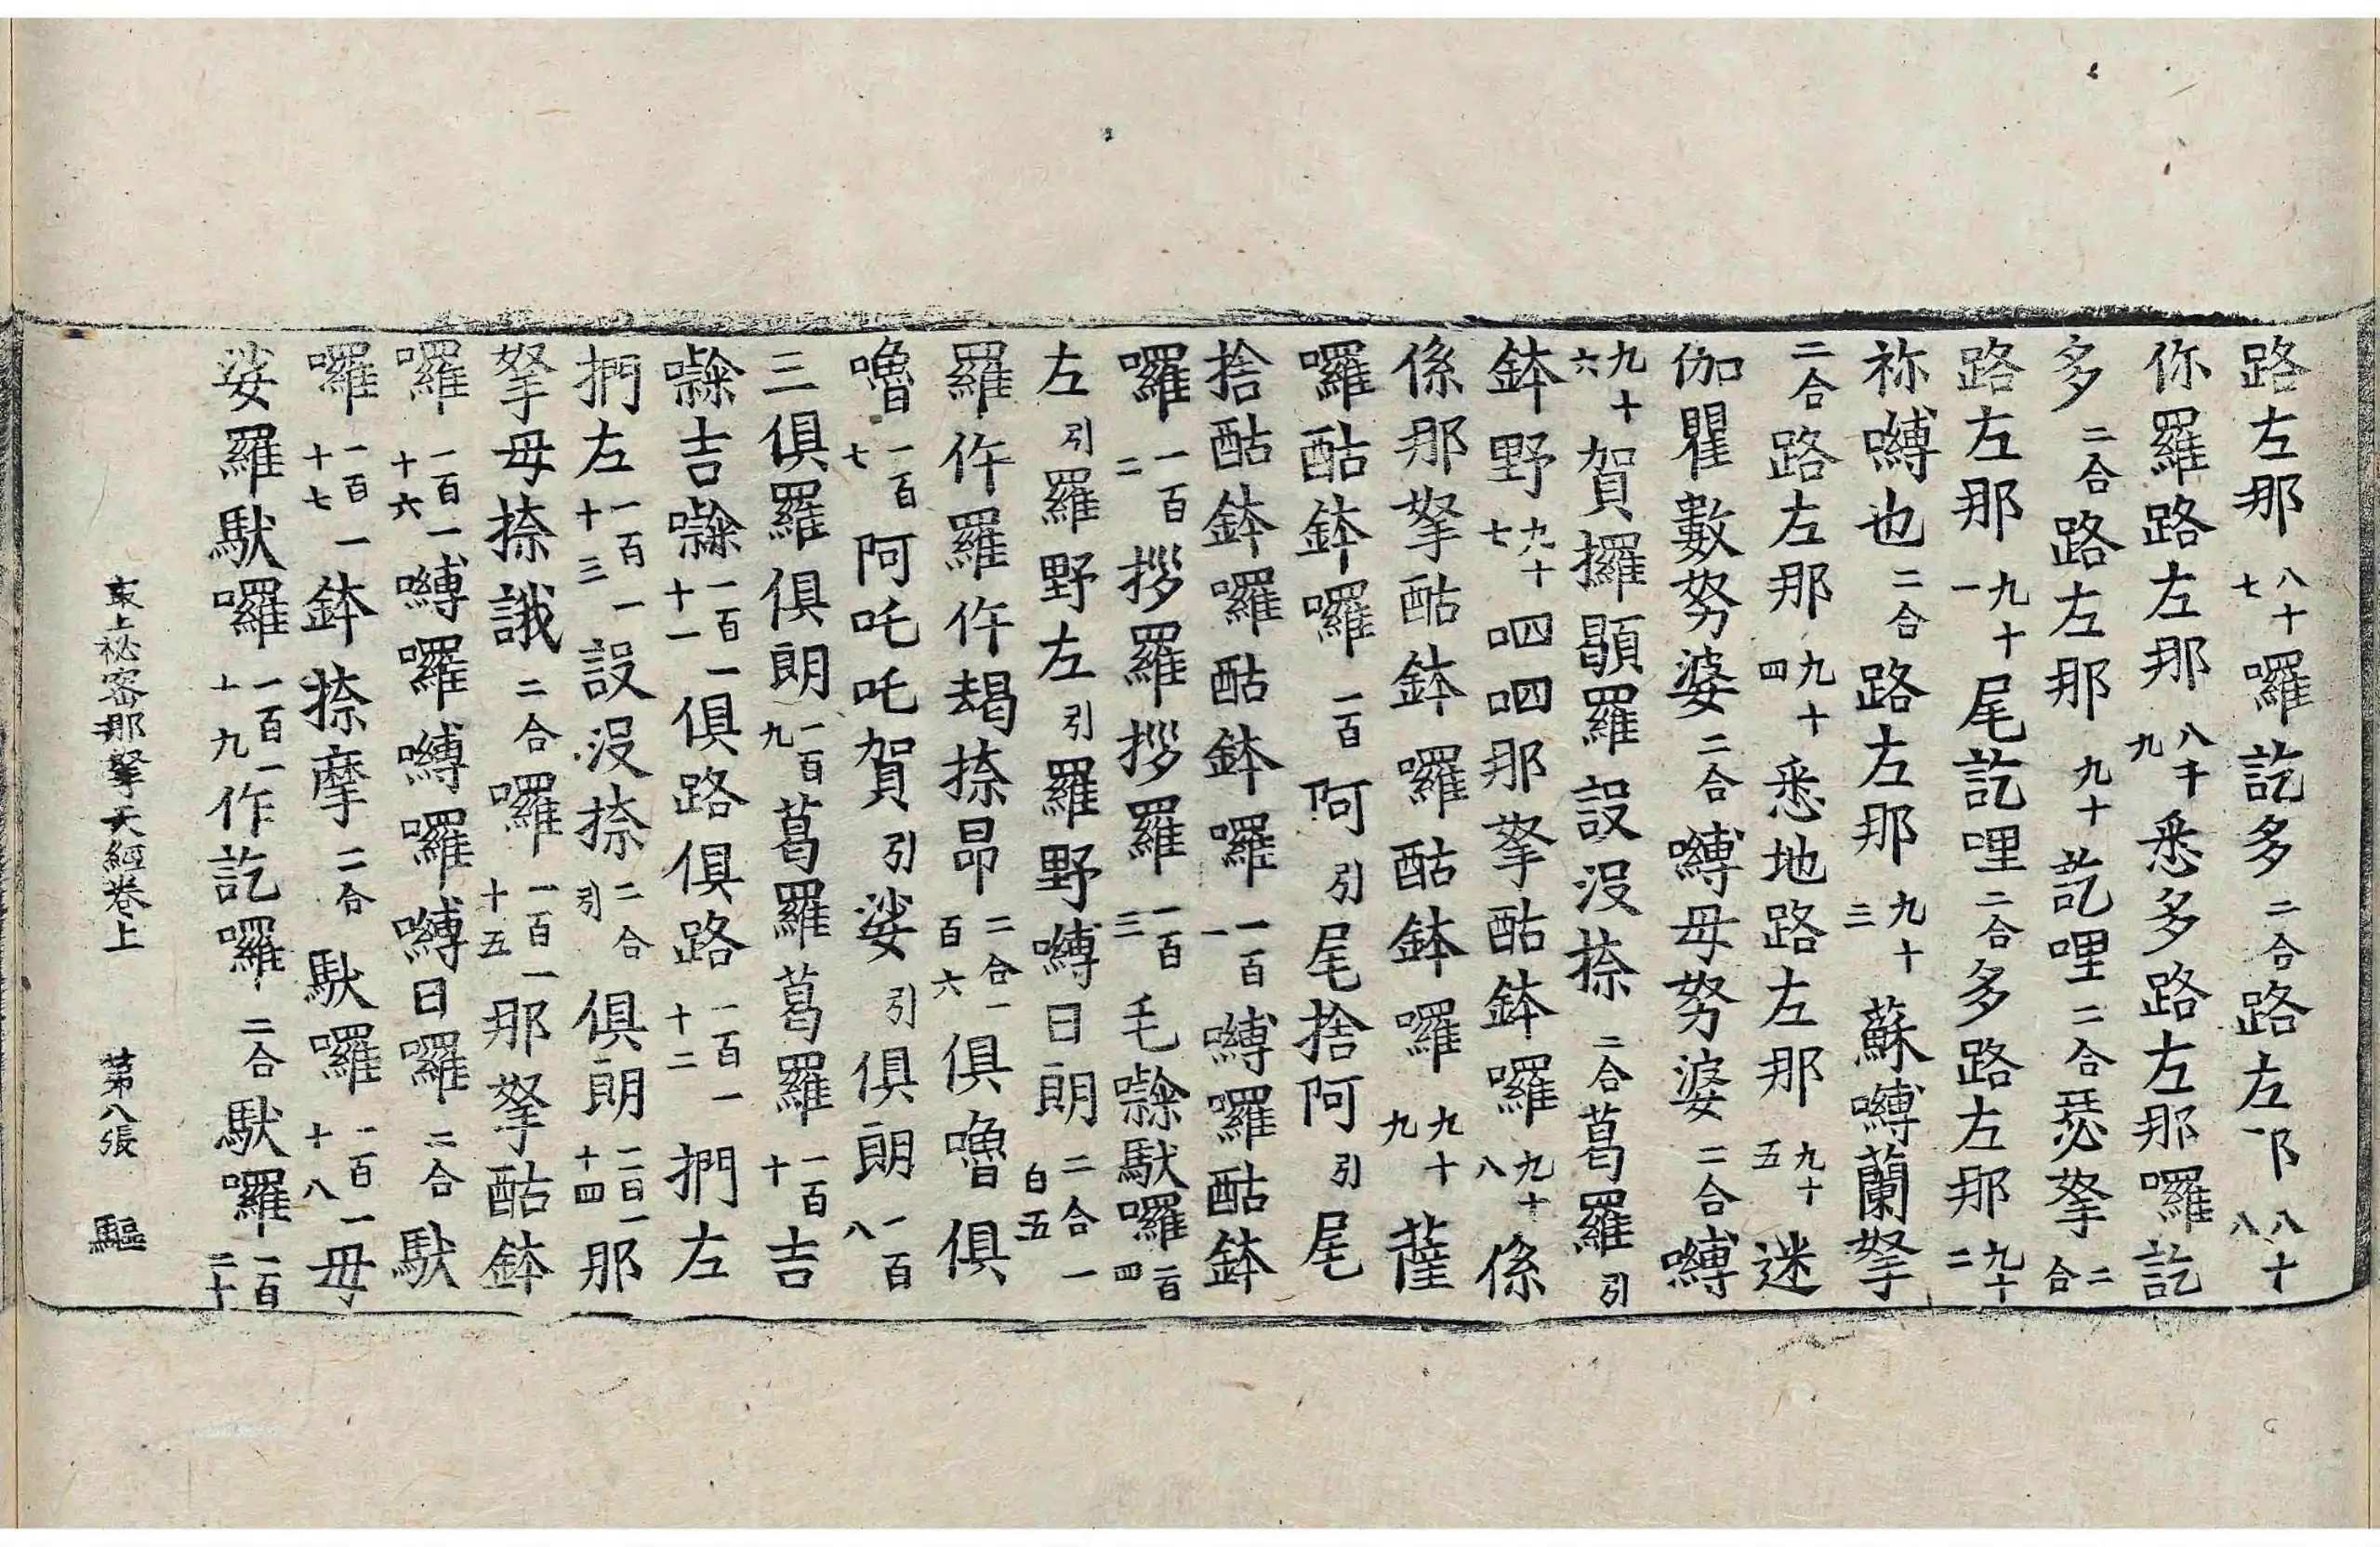 路左那八十七囉訖多二合路左那八十八
你羅路左那八十九悉多路左那囉訖
多二合路左那九十訖哩二合瑟拏二合
路左那九十一尾訖哩二合多路左那九十二
祢嚩也二合路左那九十三蘇嚩蘭拏
二合路左那九十四悉地路左那九十五迷
伽瞿數努婆二合嚩母努婆二合嚩
九十六賀攞顯羅設沒捺二合葛羅引
鉢野九十七呬呬那拏酤鉢囉九十八係
係那拏酤鉢囉酤鉢囉九十九薩
囉酤鉢囉一百阿引尾捨阿引尾
捨酤鉢囉酤鉢囉一百一嚩囉酤鉢
囉一百二拶羅拶羅一百三毛㘑馱囉一百四
左引羅野左引羅野嚩日朗二合一百五
羅仵羅仵朅捺昂二合一百六俱嚕俱
嚕一百七阿吒吒賀引娑引俱朗一百八
三俱羅俱朗一百九葛羅葛羅一百十吉
㘑吉㘑一百一十一俱路俱路一百一十二捫左
捫左一百一十三設沒捺二合引俱朗一百一十四那
拏母捺誐二合囉一百一十五那拏酤鉢
囉一百一十六嚩囉嚩囉嚩日囉二合馱
囉一百一十七鉢捺摩二合馱囉一百一十八母
娑羅馱囉一百一十九作訖囉二合馱囉一百二十
最上祕密那拏天經卷上 第八張 驅